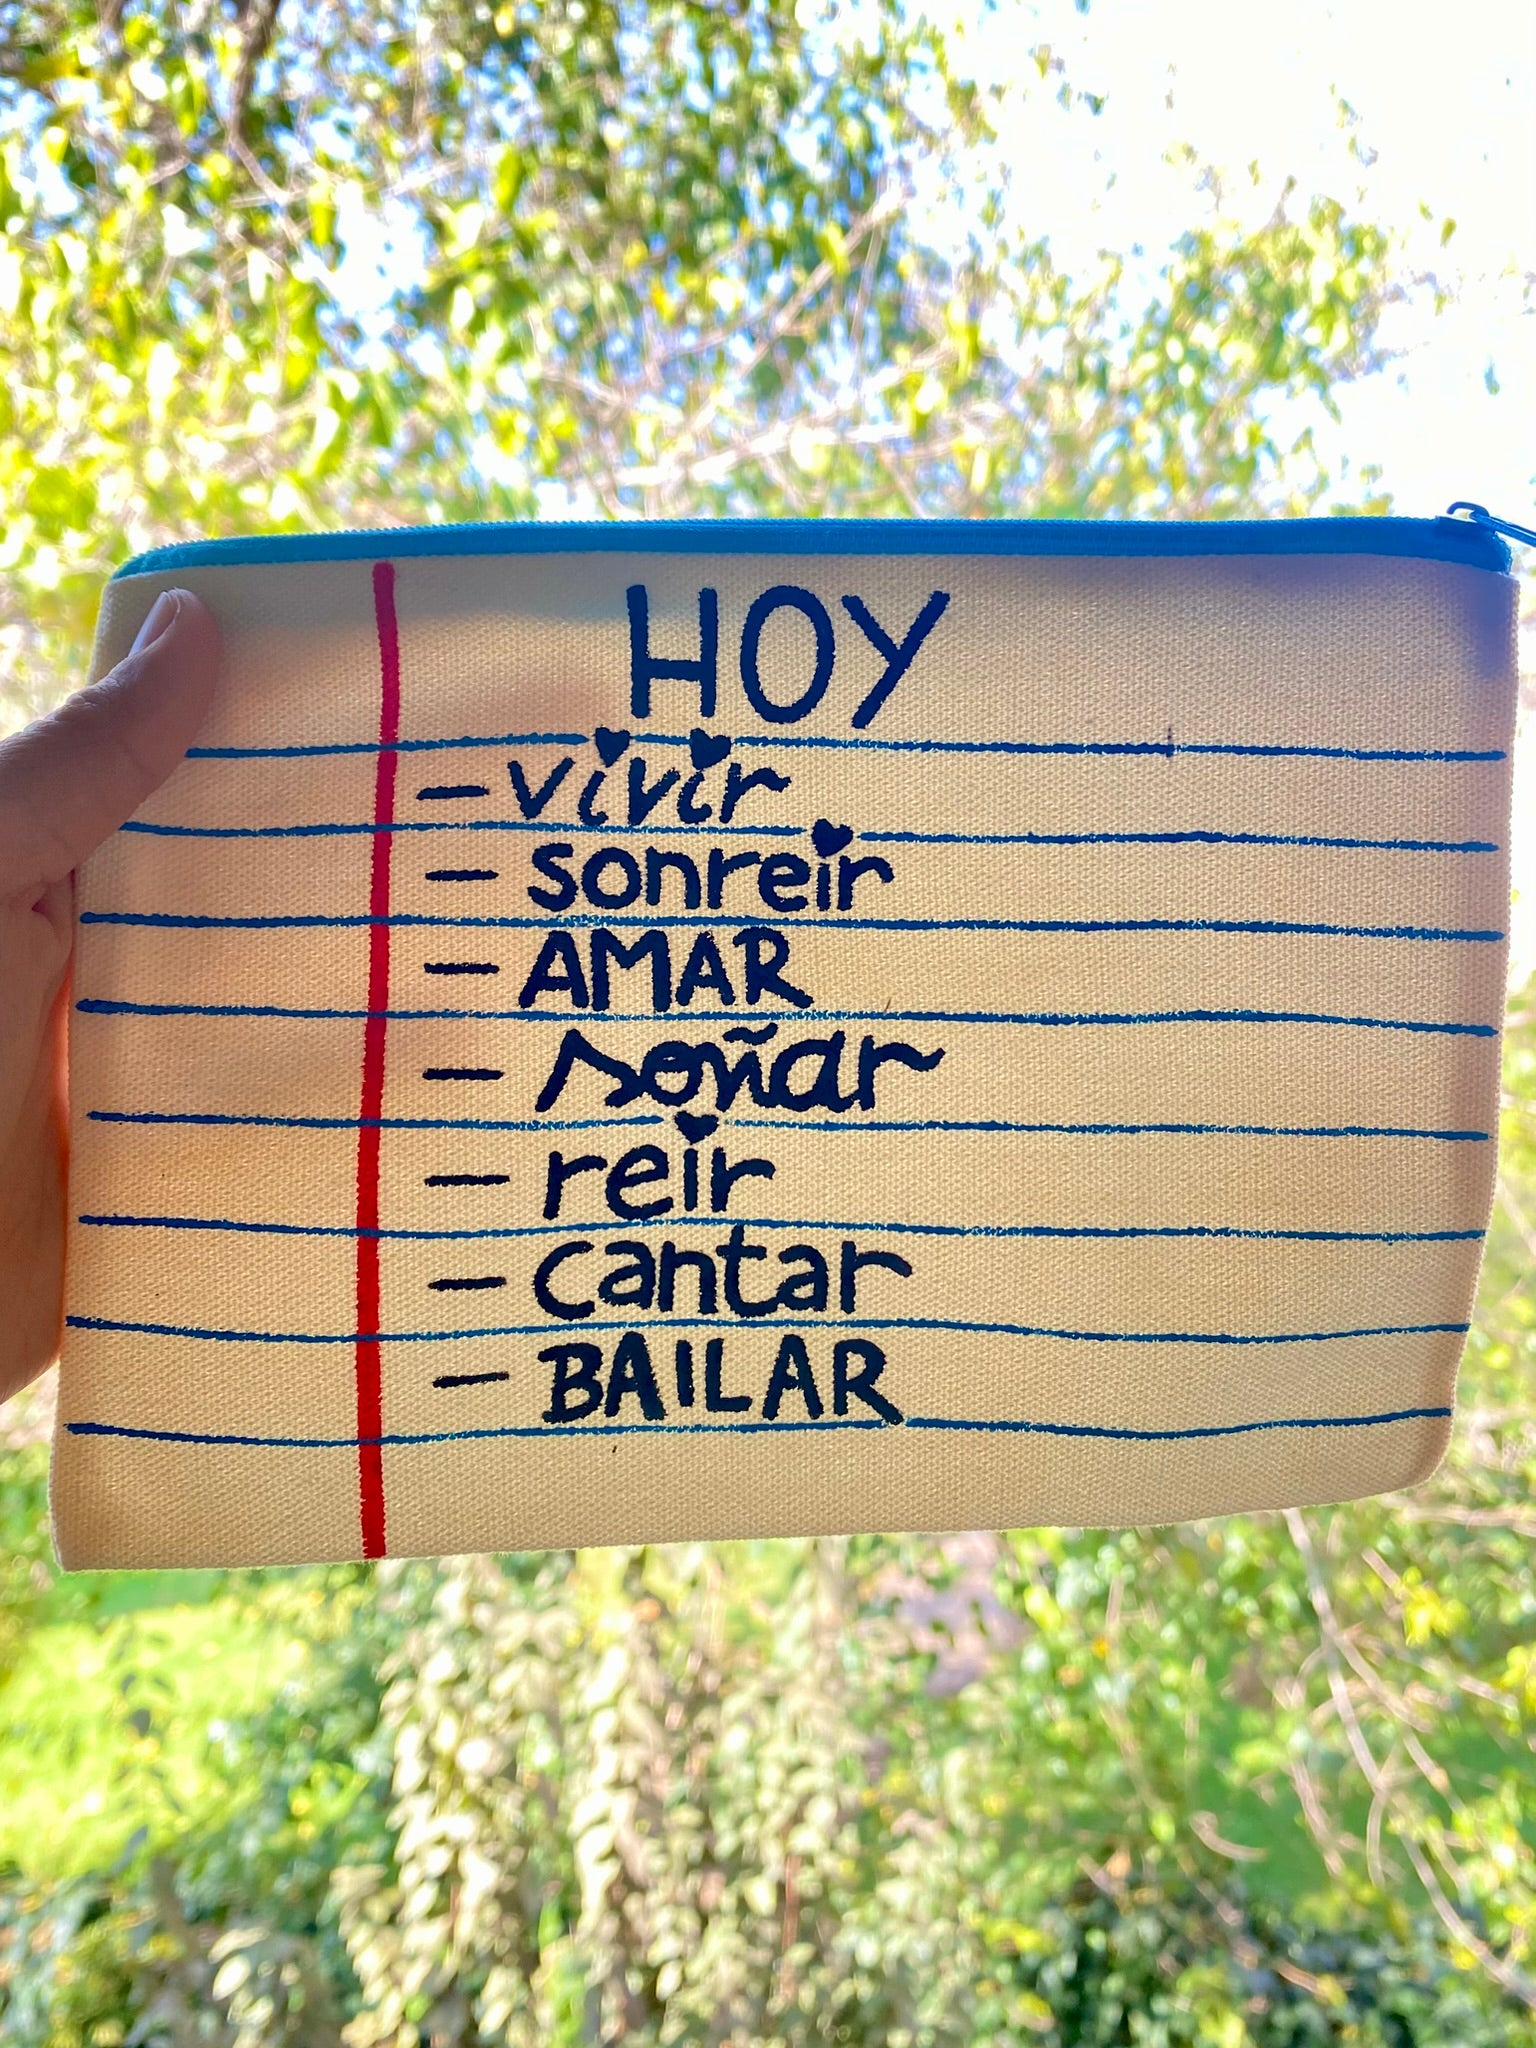 HOY
- vivir
- sonreir
- AMAR
- soñar
- reir
- cantar
- BAILAR